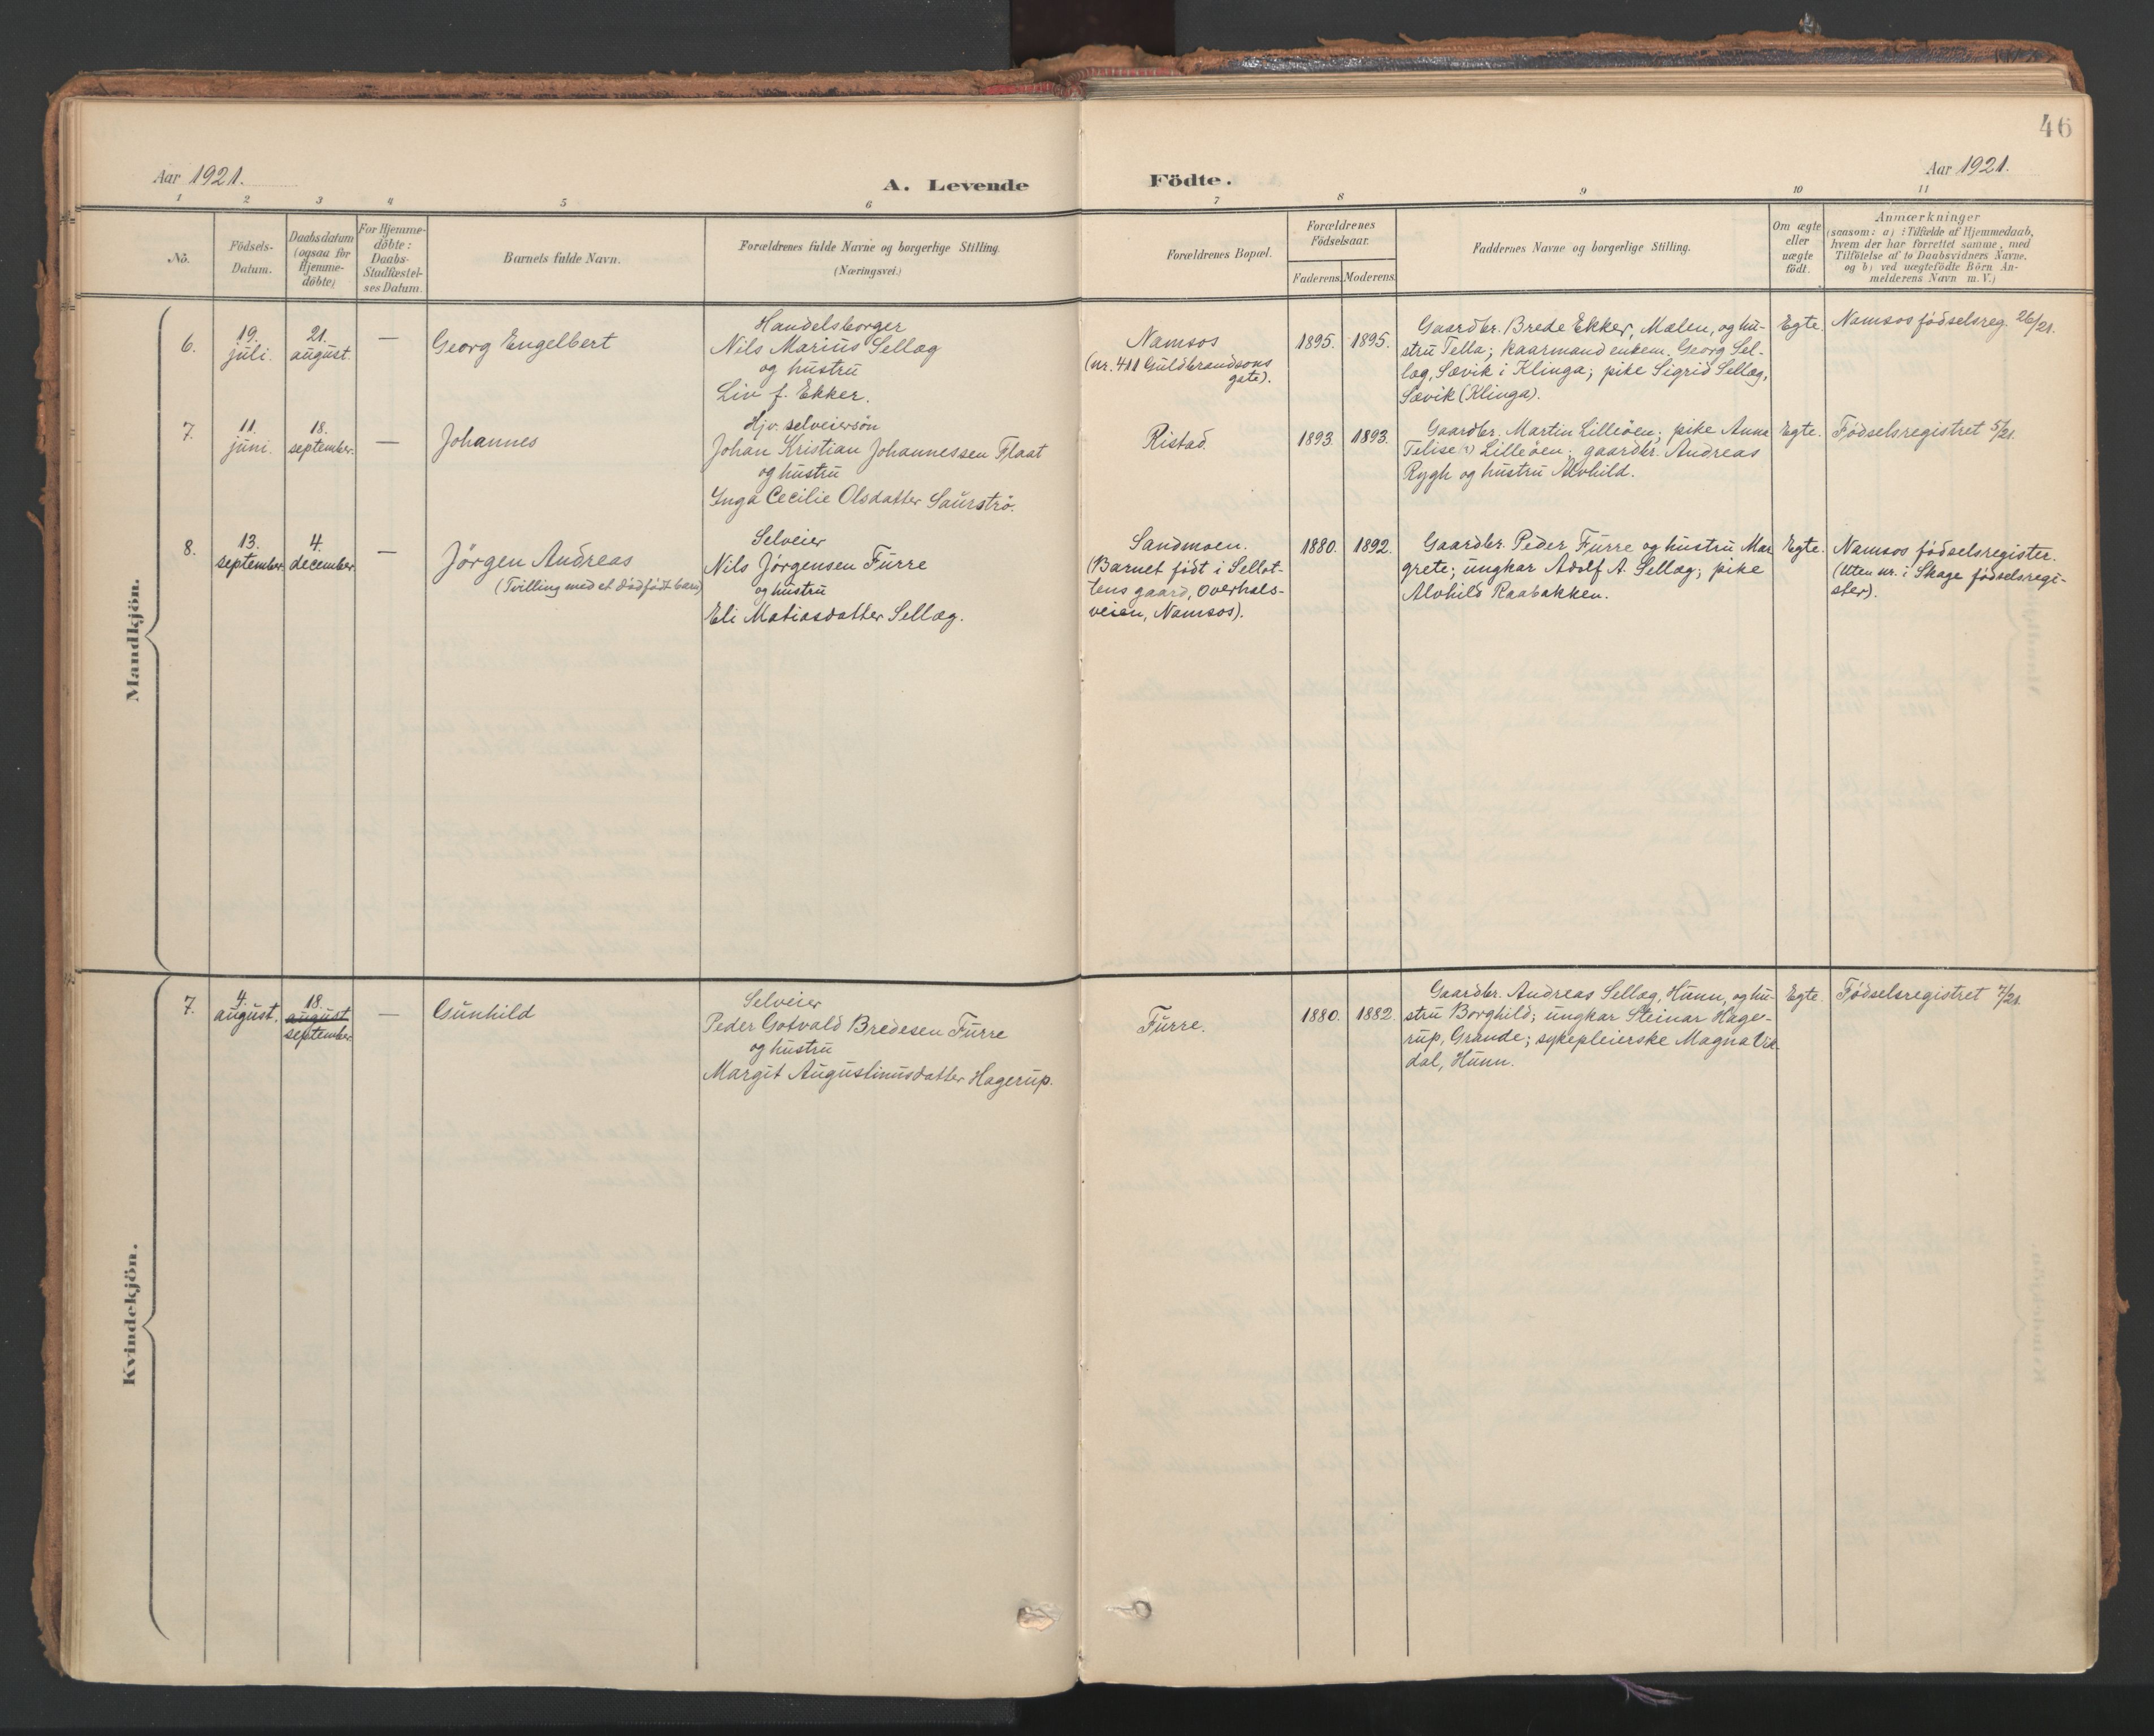 46
Aar 1921.
A. Levende
Födte.
Aar 1921.
1 2 3 4 5 6 7 8 9 10 11
Nö.
Födsels-
Datum.
Daabsdatum
(ogsaa for
Hjemme-
döbte)
For Hjemme-
döbte:
Daabs-
Stadfæstel-
ses Datum.
Barnets fulde Navn.
Forældrenes fulde Navne og borgerlige Stilling.
(Næringsvei.)
Forældrenes Bopæl.
Forældrenes
Födselsaar.
Faderens.
Moderens.
Faddernes Navne og borgerlige Stilling.
Om ægte
eller
uægte
födt.
Anmærkninger
(saasom: a) i Tilfælde af Hjemmedaab,
hvem der har forrettet samme, med
Tilföielse af to Daabsvidners Navne,
og b) ved uægtefödte Börn An-
melderens Navn m. V.)
Mandkjön.
6.
19.
juli.
21.
august.
—
Georg Engelbert
Handelsborger
Nils Marius Sellæg
og hustru
Liv f. Ekker.
Namsos
(nr. 411 Guldbrandsons
gate).
1895.
1895.
Gaardbr. Brede Ekker, Mælen, og hu-
stru Tella; kaarmand enkem. Georg Sel-
læg, Sævik i Klinga; pike Sigrid Sellæg,
Sævik (Klinga).
Egte.
Namsos födselsreg. 26/21.
7.
11.
juni.
18.
september.
—
Johannes
Hjv. selveiersön
Johan Kristian Johannessen Flaat
og hustru
Inga Cecilie Olsdatter Saurströ.
Ristad.
1893.
1893.
Gaardbr. Martin Lilleöen; pike Anna
Telise Lilleöen; gaardbr. Andreas
Rygh og hustru Alvhild.
Egte.
Födselsregistret 5/21.
8.
13.
september.
4.
december.
—
Jörgen Andreas
(Tvilling med et dödfödt barn)
Selveier
Nils Jörgensen Furre
og hustru
Eli Matiasdatter Sellæg.
Sandmoen.
(Barnet födt i Sellot-
tens gaard, Overhals-
veien, Namsos).
1880.
1892.
Gaardbr. Peder Furre og hustru Mar
grete; ungkar Adolf A. Sellæg; pike
Alvhild Raabakken.
Egte.
Namsos födselsregister.
(Uten nr. i Skage födselsregi-
ster).
Kvindekjön.
7.
4.
august.
18.
august
september
—
Gunhild
Selveier
Peder Gotvald Bredesen Furre
og hustru
Margit Augustinusdatter Hagerup.
Furre.
1880.
1882.
Gaardbr. Andreas Sellæg, Hunn, og hu-
stru Borghild; ungkar Steinar Hage-
rup, Grande; sykepleierske Magna
dal, Hunn.
Egte.
Födselsregistret 7/21.